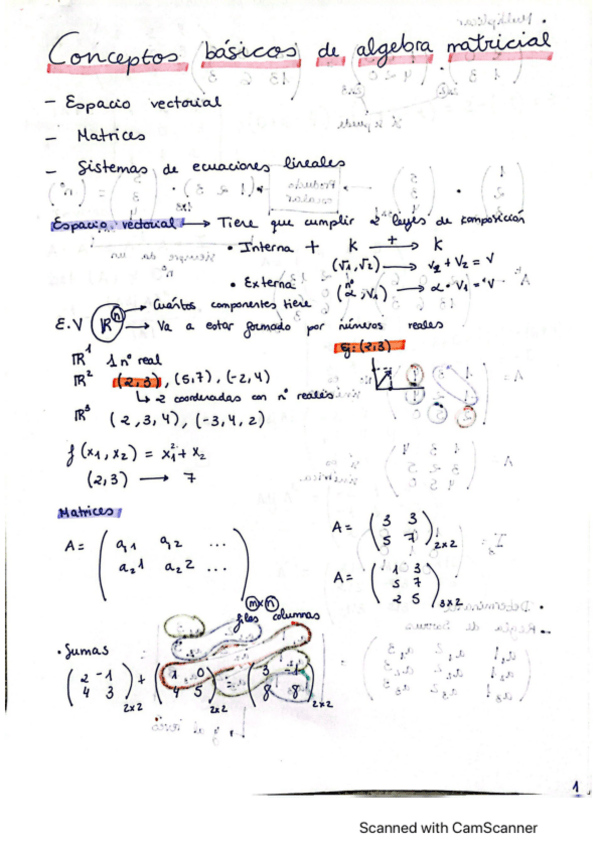 Conceptos básicos de algebra matricial
- Espacio vectorial
- Matrices
- Sistemas de ecuaciones lineales
Espacio vectorial → Tiene que cumplir 2 leyes de composición
• Interna + K + → K
(v1, v2) → v1 + v2 = v
• Externa
nº
(α, v1) → α · v1 = v
→ Cuántos componentes tiene
E.V (ℝⁿ) → Va a estar formado por números reales
ℝ¹ 1 nº real
Ej: (2,3)
ℝ² (2,3), (5,7), (-2,4)
↳ 2 coordenadas con nº reales
ℝ³ (2,3,4), (-3,4,2)
f(x1, x2) = x1² + x2
(2,3) → 7
Matrices
A = ( a11 a12 ...
a21 a22 ... )
A = ( 3 3
5 7 ) 2x2
A = ( 1 3
5 7
2 5 ) 3x2
m×n
filas columnas
• Sumas
( 2 -1
4 3 ) 2x2 + ( 1 0
4 5 ) 2x2 = ( 3 -1
8 8 ) 2x2
1
Scanned with CamScanner